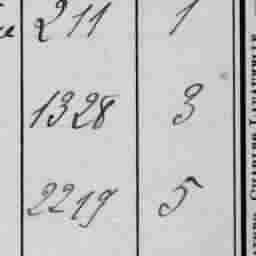 211 1
1328 3
2219 5